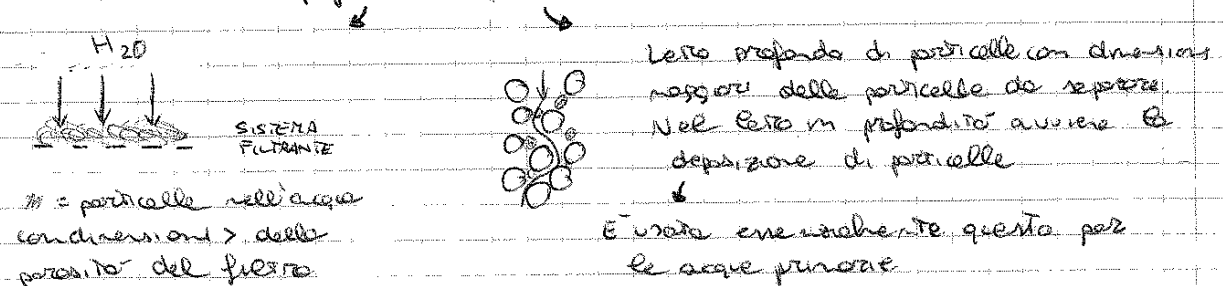 H2O
SISTEMA
FILTRANTE
= particelle nell'acqua
con dimensioni > della
porosità del filtro
Letto profondo di particelle con dimensioni
maggiori delle particelle da separare.
Nel letto in profondità avviene la
deposizione di particelle
È usata essenzialmente questa per
le acque primarie